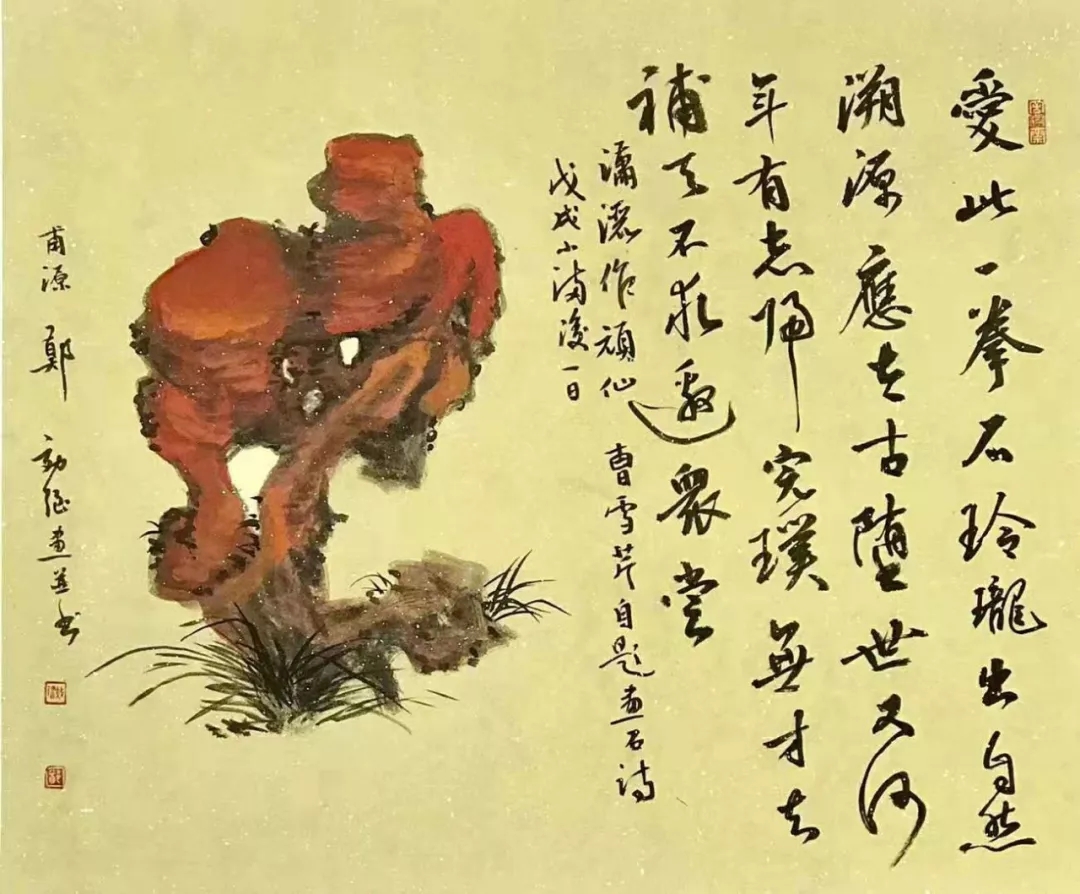 愛此一拳石玲瓏出自然
溯源應太古墮世又何
年有志歸完璞無才去
補天不求邀眾賞
瀟灑作頑仙 曹雪芹自題畫石詩
戊戌小滿後一日
甫源 鄭 畫並書